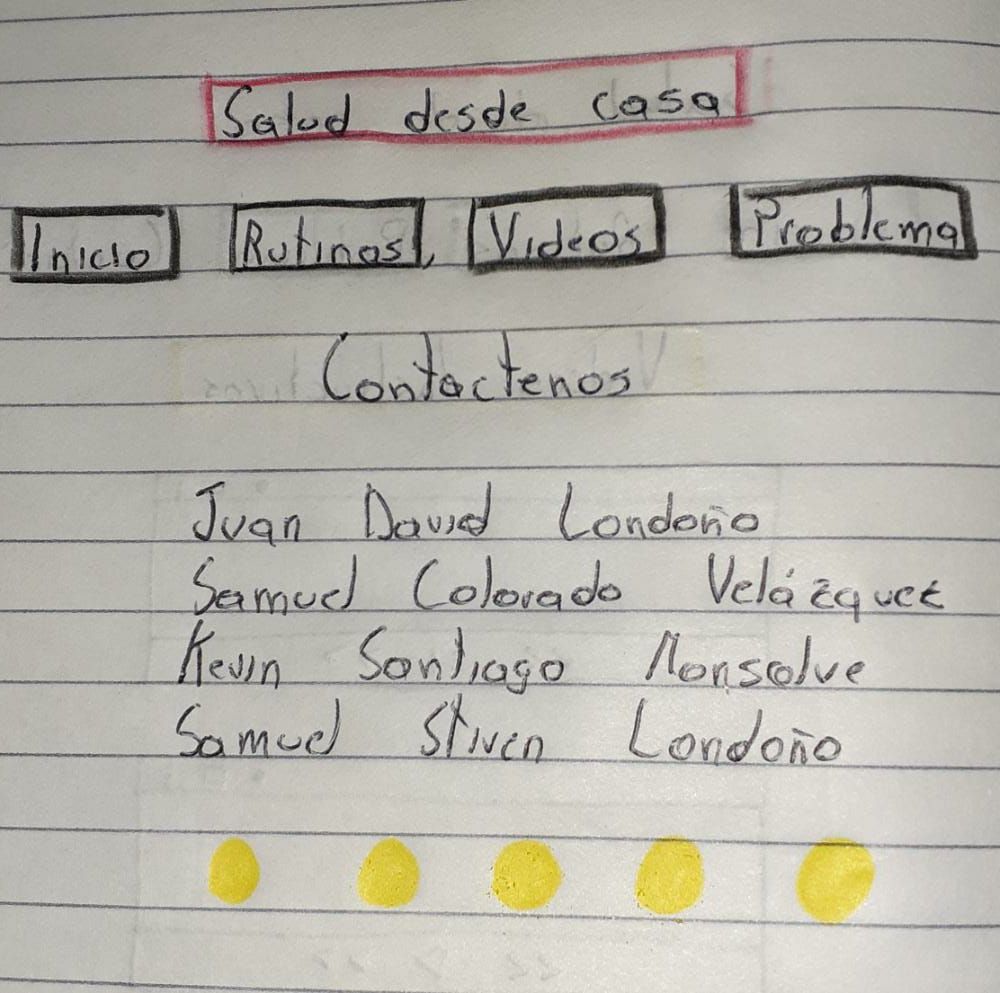 Salud desde casa
Inicio Rutinas, Videos Problema
Contactenos
Juan David Londoño
Samuel Colorado Velázquez
Kevin Santiago Monsalve
Samuel Stiven Londoño